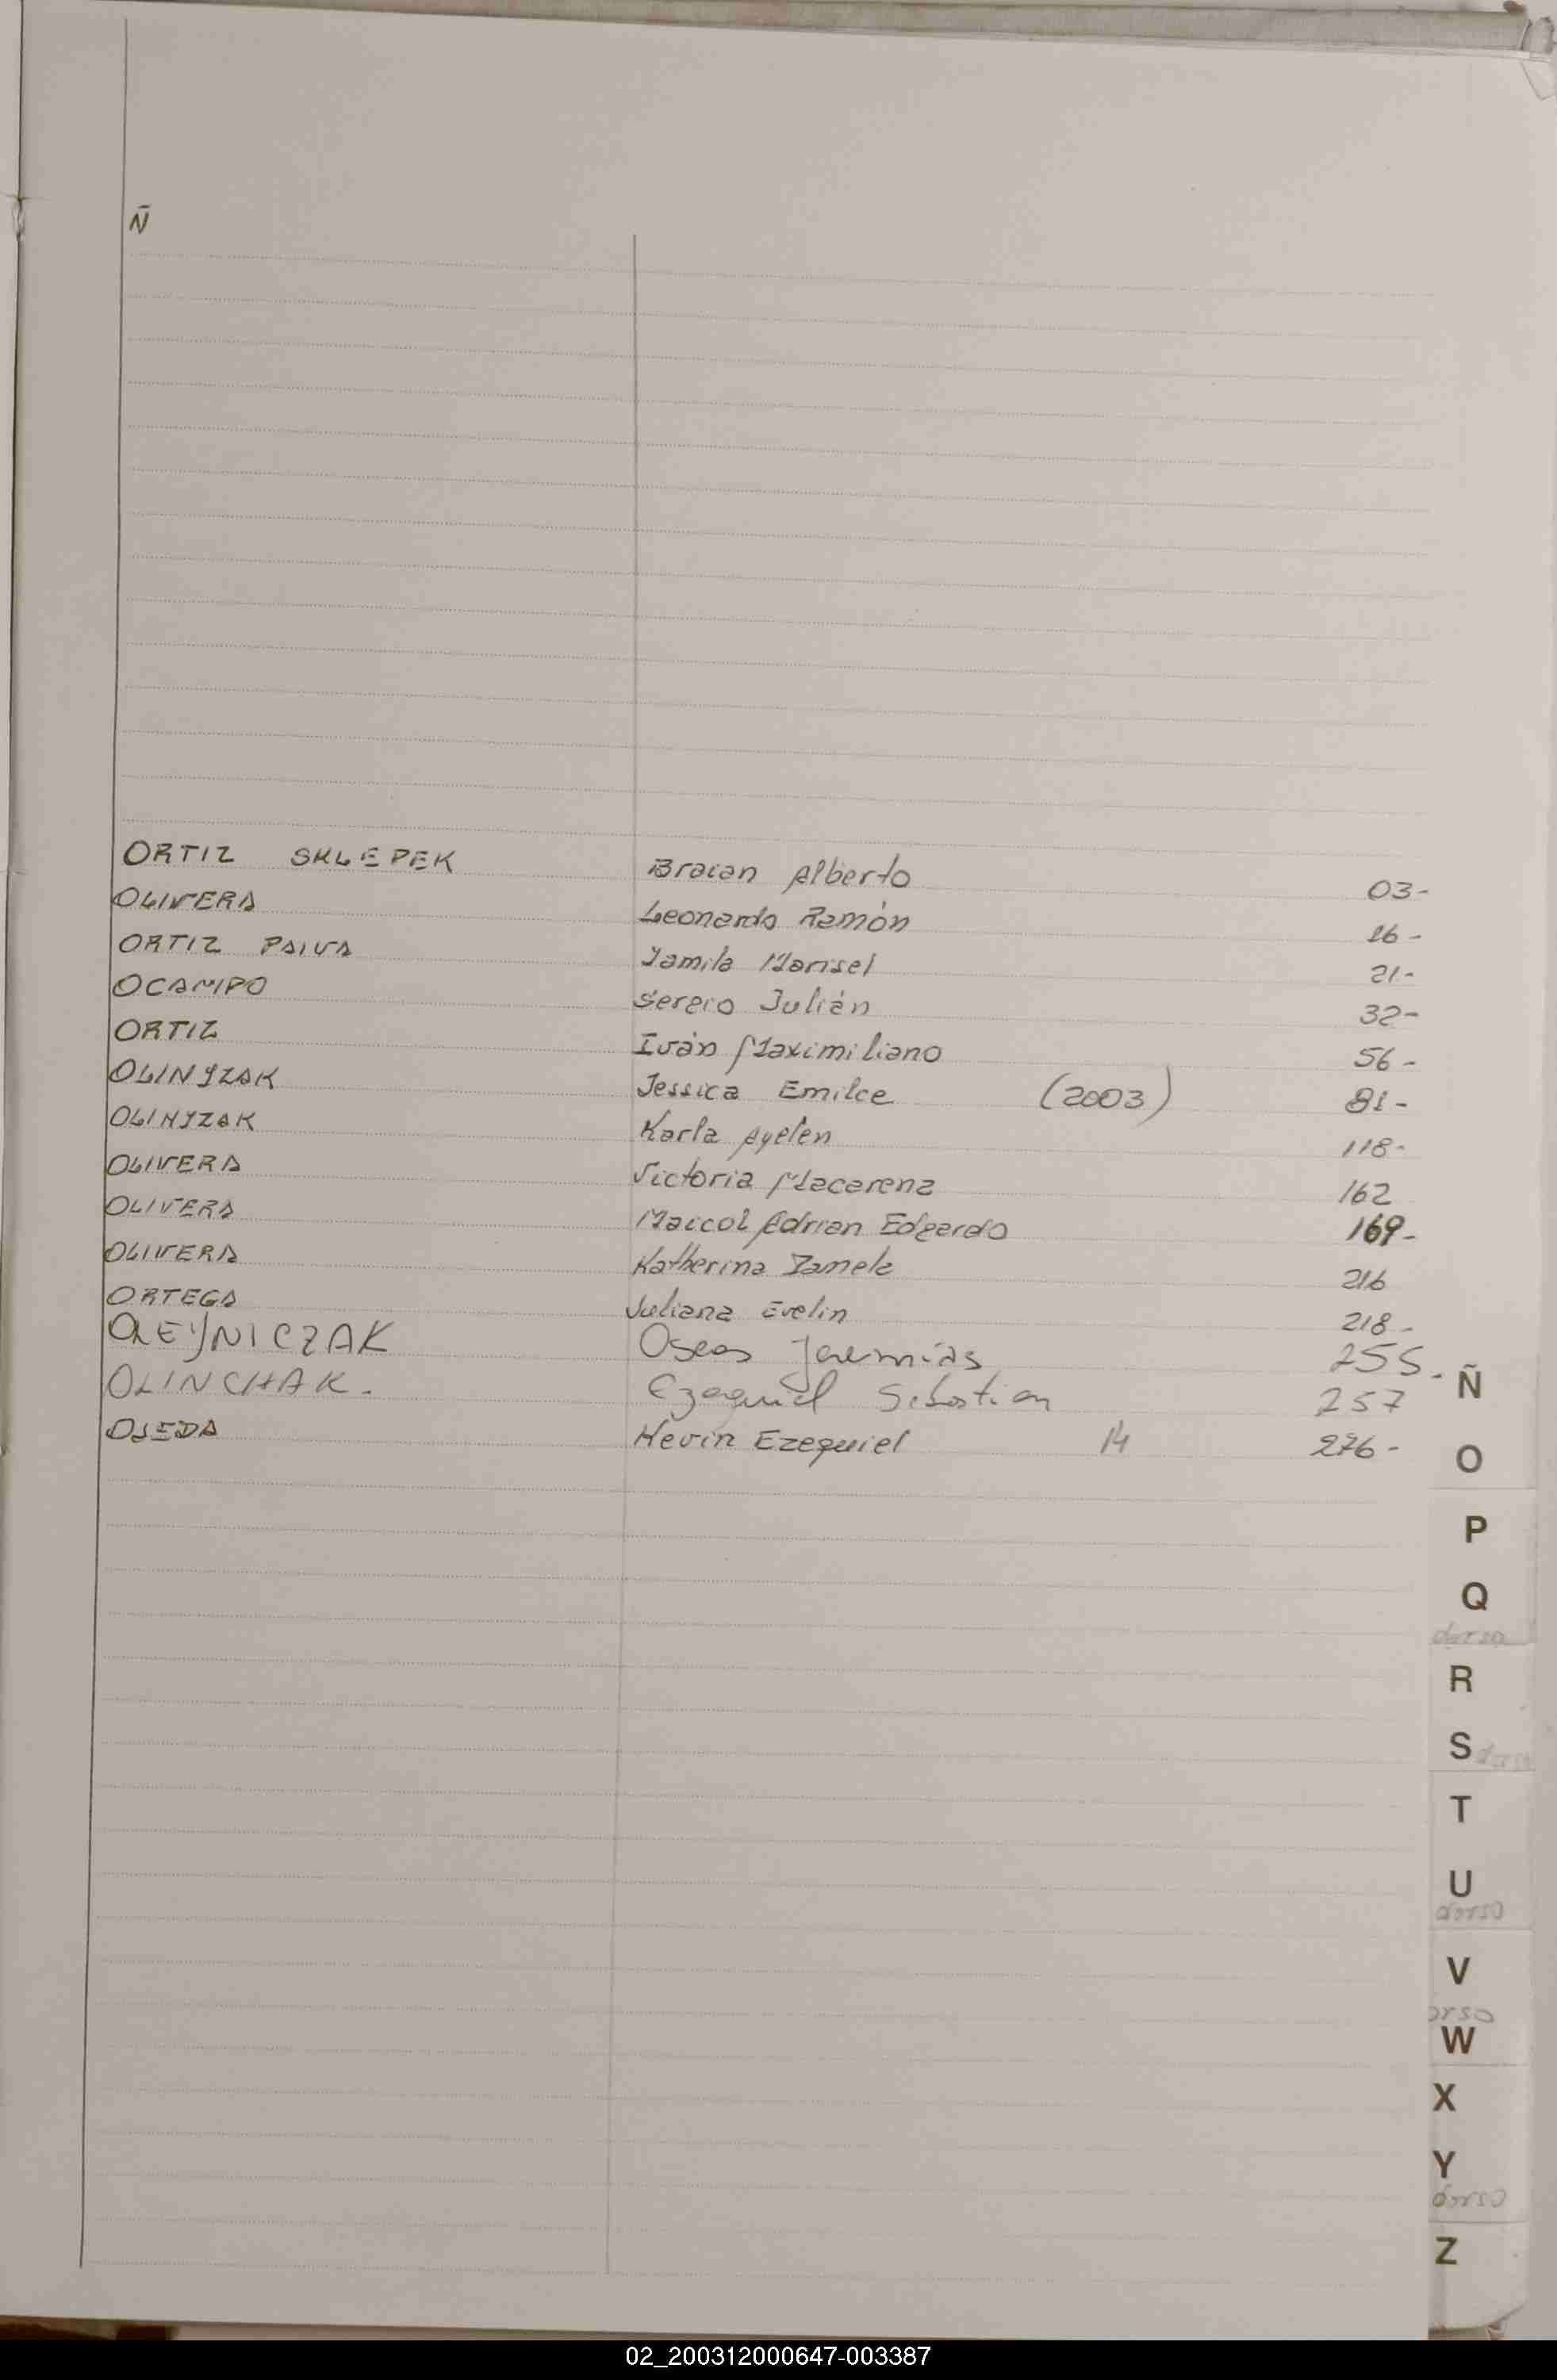 Ñ
ORTIZ SKLEPEK Braian Alberto 03-
OLIVERA Leonardo Ramón 16-
ORTIZ PAIVA Yamila Marisel 21-
OCAMPO Sergio Julián 32-
ORTIZ Iván Maximiliano 56-
OLINYZAK Jessica Emilce (2003) 81-
OLINYZAK Karla Ayelen 118-
OLIVERA Victoria Macarena 162
OLIVERA Maicol Adrian Edgardo 169-
OLIVERA Katherina Yamela 216
ORTEGA Juliana Evelin 218-
OLEYNICZAK Oseas Jeremías 255-
OLINCHAK. Ezequiel Sebastian 257
OJEDA Kevin Ezequiel 14 276-
Ñ
O
P
Q
dorso
R
S dorso
T
U
dorso
V
orso
W
X
Y
dorso
Z
02_200312000647-003387